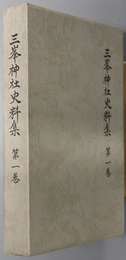 三峯神社史料集 第一巻
三峯神社史料集 第一巻